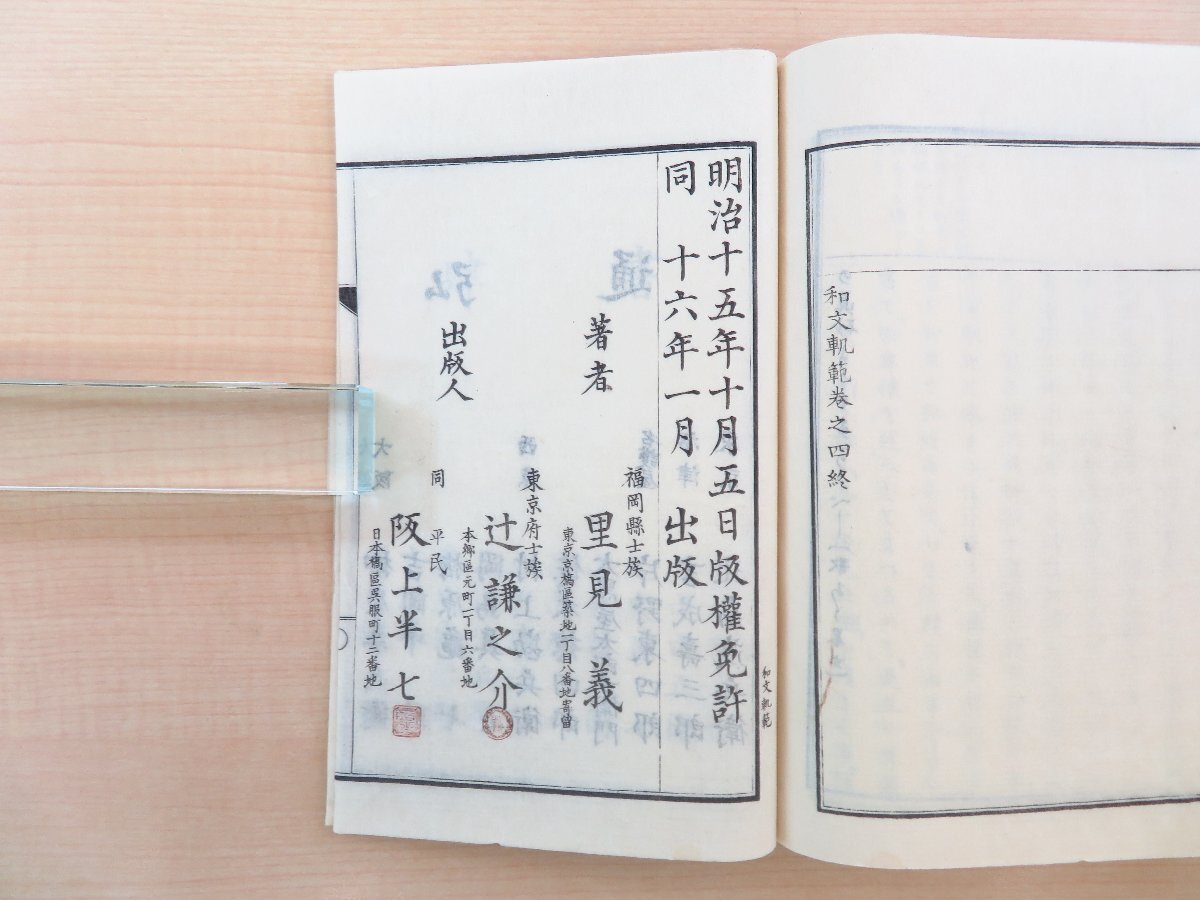 和文軌範卷之四終
和文軌範
明治十五年十月五日版權免許
同 十六年一月 出版
著者
福岡縣士族
里見義
東京京橋區築地一丁目八番地寄留
出版人
東京府士族
辻謙之介
本鄉區元町一丁目六番地
同 平民
阪上半七
日本橋區吳服町十二番地